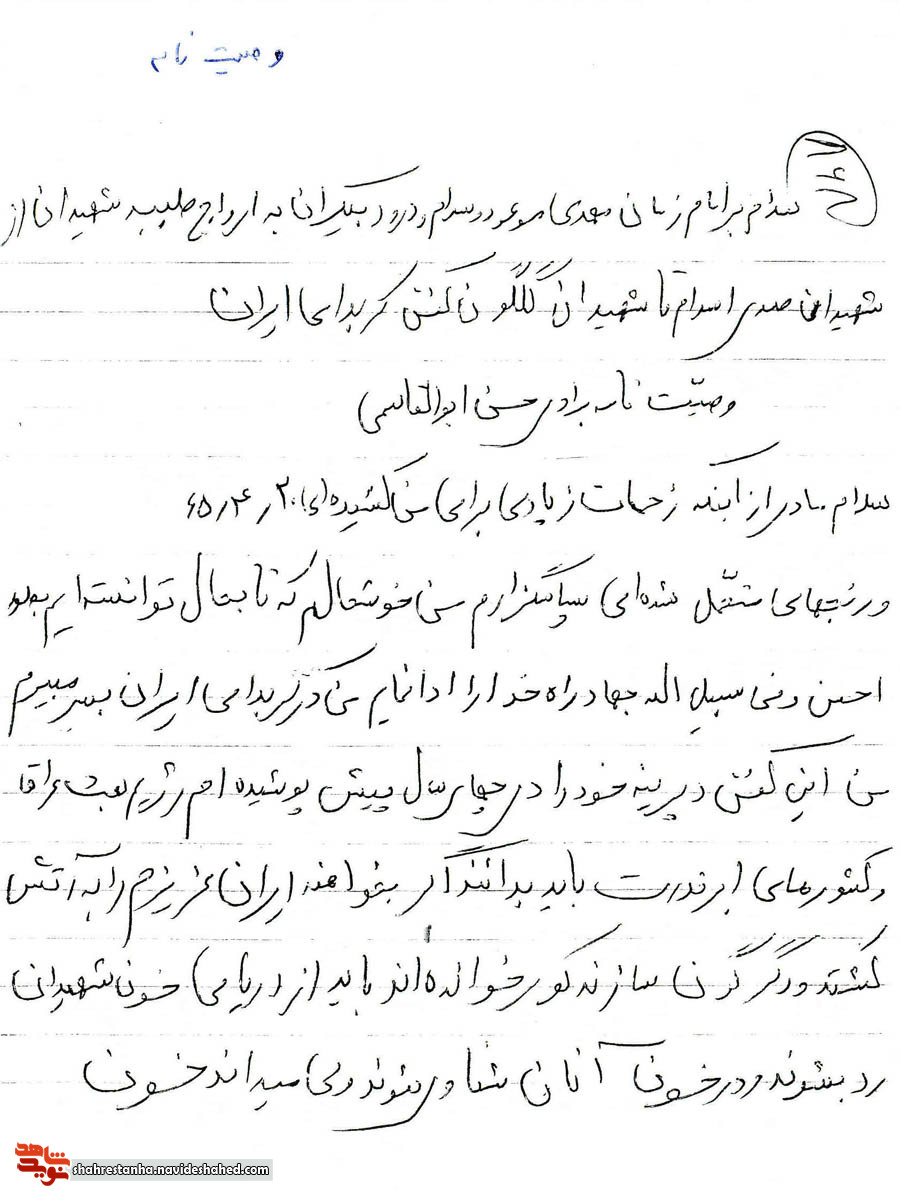 وصیت نامه
سلام بر امام زمان مهدی موعود و سلام و درود بیکران به ارواح طیبه شهیدان از
شهیدان صدر اسلام تا شهیدان گلگون کفن کربلای ایران
وصیّت نامه برادر حسن ابوالقاسمی
سلام مادر از اینکه زحمات زیادی برای من کشیده ای ۲۰ ر ۴ ر ۶۵
و رنجهای متحمّل شده ای سپاسگزارم من خوشحالم که تا بحال توانسته ایم بنحو
احسن و فی سبیل الله جهاد راه خدا را ادا نمایم من در کربلای ایران بسر میبرم
من این کفن دیرینه خود را در چهار سال پیش پوشیده ام رژیم بعث عراق
و کشورهای ابرقدرت باید بدانند اگر بخواهند ایران عزیزم را به آتش
کشند و دگرگون سازند کور خوانده اند باید از دریای خون شهیدان
رد بشوند و در خون آنان شناور شوند ولی میداند خون
نوید شاهد
shahrestanha.navideshahed.com